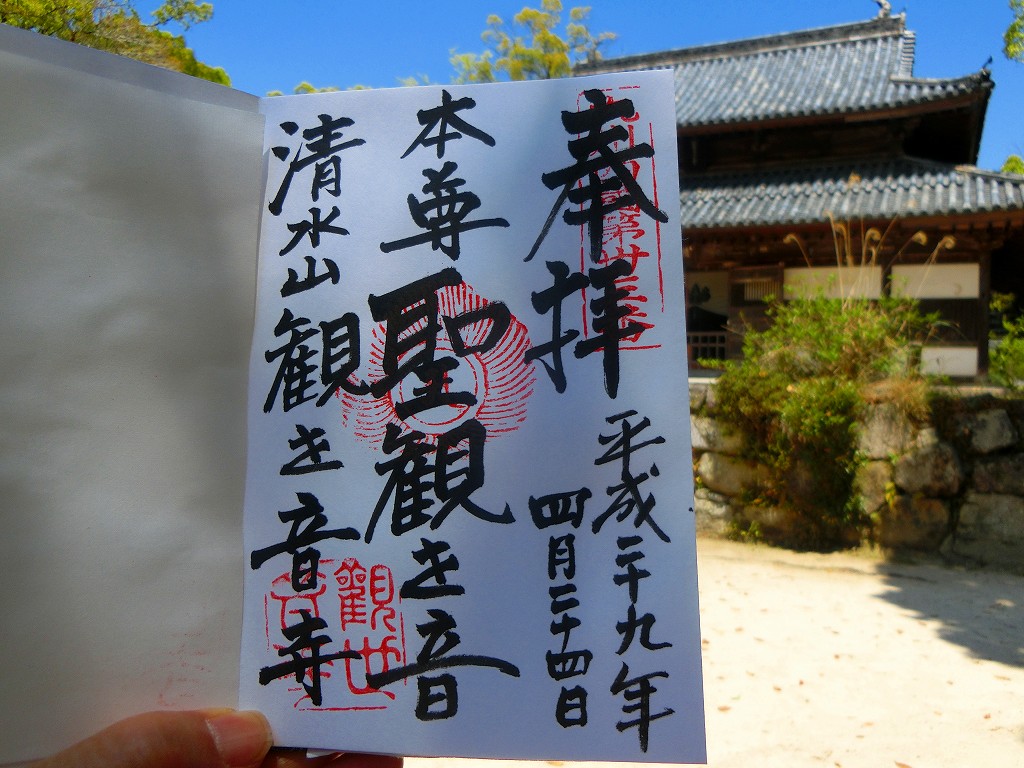 奉拝
平成二十九年
四月二十四日
本尊聖観世音
清水山観世音寺
第卅三
觀世
音寺